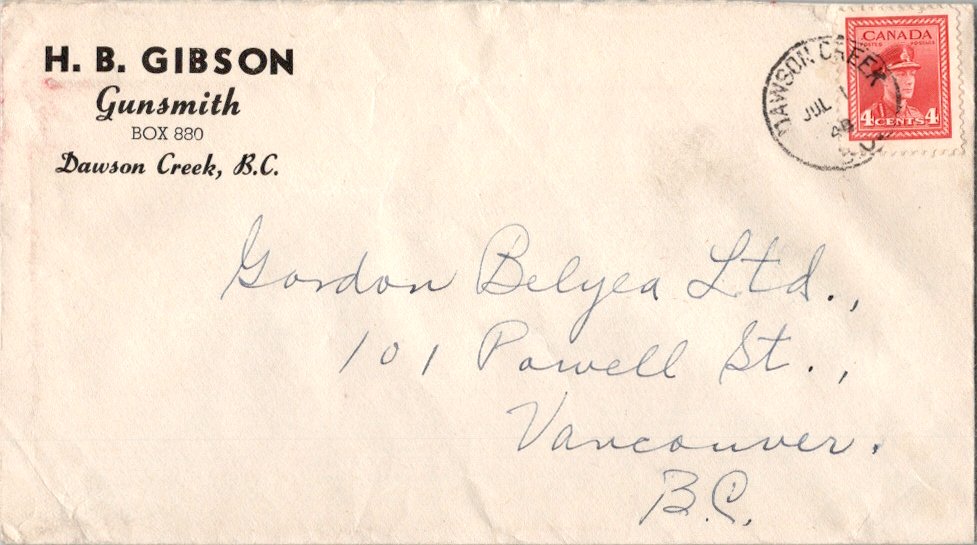 H. B. GIBSON
Gunsmith
BOX 880
Dawson Creek, B.C.
DAWSON CREEK
JUL 1
48
B.C.
CANADA
POSTES POSTAGE
4 CENTS 4
Gordon Belyea Ltd.,
101 Powell St.,
Vancouver.
B.C.